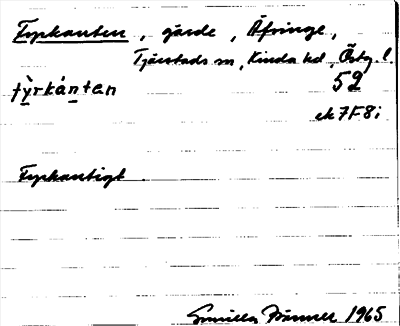 Fyrkanten, gärde, Äfringe,
Tjärstads sn, Kinda hd, Östg. l.
fỳrkán̠tan 52
ek 7F8i
Fyrkantigt.
Gunilla 1965